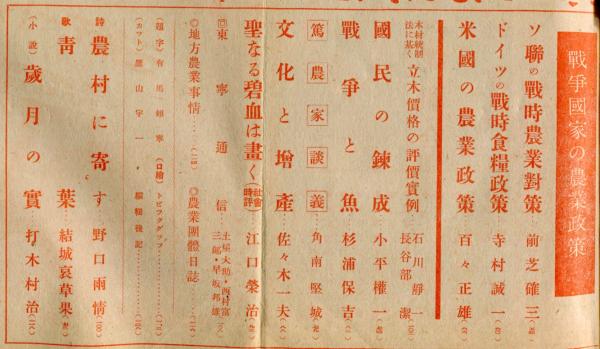 戰爭國家の農業政策
ソ聯の戰時農業對策 前芝確三
ドイツの戰時食糧政策 寺村誠一
米國の農業政策 百々正雄
木材統制法に基く 立木價格の評價實例 石川靜一 長谷部潔
國民の鍊成 小平權一
戰爭と魚 杉浦保吉
篤農家談義 角南堅城
文化と增產 佐々木一夫
聖なる碧血は畫く(社會時評) 江口榮治
東寧通信 土屋大助・西村富三郎・早坂邦雄
◎地方農業事情 ◎農業團體日誌
(題字)有馬賴寧 (口繪)トピックグラフ
(カット)黑山宇一 編輯後記
詩 農村に寄す 野口雨情
歌 靑葉 結城哀草果
(小說)歲月の實 打木村治